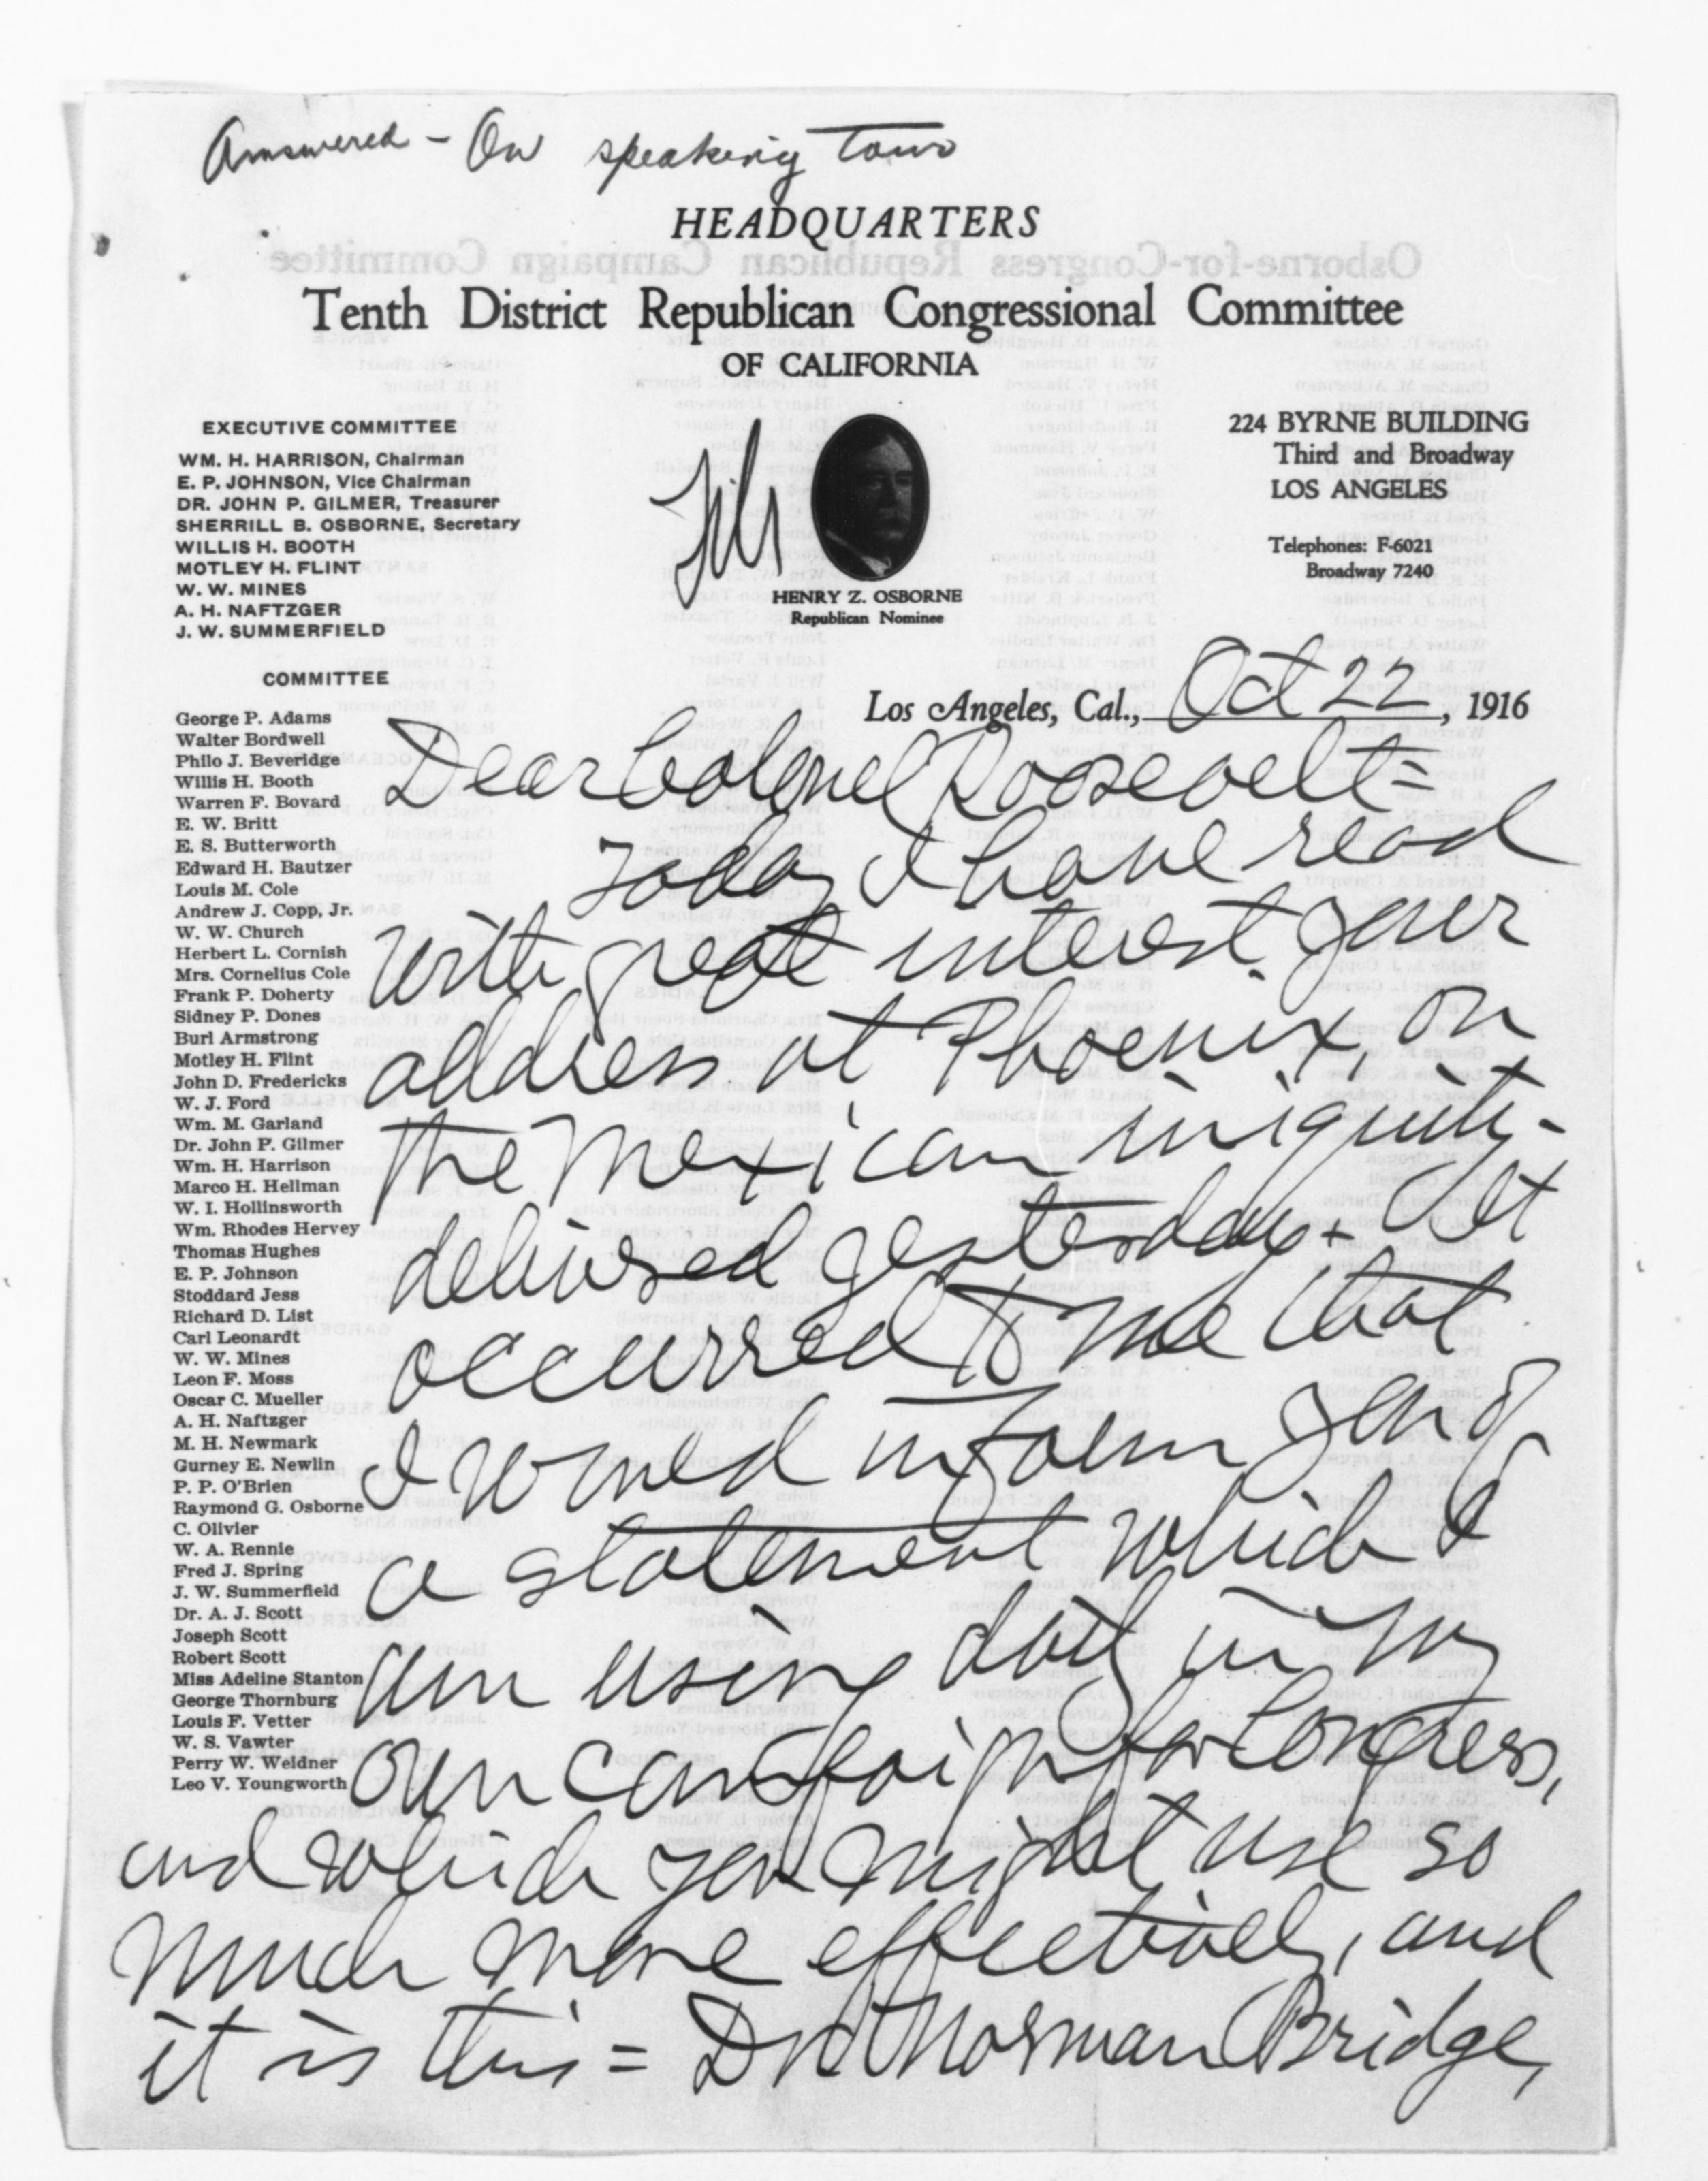 Answered - On speaking tour
HEADQUARTERS
Tenth District Republican Congressional Committee
OF CALIFORNIA
EXECUTIVE COMMITTEE
WM. H. HARRISON, Chairman
E. P. JOHNSON, Vice Chairman
DR. JOHN P. GILMER, Treasurer
SHERRILL B. OSBORNE, Secretary
WILLIS H. BOOTH
MOTLEY H. FLINT
W. W. MINES
A. H. NAFTZGER
J. W. SUMMERFIELD
File
HENRY Z. OSBORNE
Republican Nominee
224 BYRNE BUILDING
Third and Broadway
LOS ANGELES
Telephones: F-6021
Broadway 7240
COMMITTEE
George P. Adams
Walter Bordwell
Philo J. Beveridge
Willis H. Booth
Warren F. Bovard
E. W. Britt
E. S. Butterworth
Edward H. Bautzer
Louis M. Cole
Andrew J. Copp, Jr.
W. W. Church
Herbert L. Cornish
Mrs. Cornelius Cole
Frank P. Doherty
Sidney P. Dones
Burl Armstrong
Motley H. Flint
John D. Fredericks
W. J. Ford
Wm. M. Garland
Dr. John P. Gilmer
Wm. H. Harrison
Marco H. Hellman
W. I. Hollinsworth
Wm. Rhodes Hervey
Thomas Hughes
E. P. Johnson
Stoddard Jess
Richard D. List
Carl Leonardt
W. W. Mines
Leon F. Moss
Oscar C. Mueller
A. H. Naftzger
M. H. Newmark
Gurney E. Newlin
P. P. O'Brien
Raymond G. Osborne
C. Olivier
W. A. Rennie
Fred J. Spring
J. W. Summerfield
Dr. A. J. Scott
Joseph Scott
Robert Scott
Miss Adeline Stanton
George Thornburg
Louis F. Vetter
W. S. Vawter
Perry W. Weidner
Leo V. Youngworth
Los Angeles, Cal., Oct 22, 1916
Dear Colonel Roosevelt=
Today I have read
with great interest your
address at Phoenix, on
the Mexican iniquity-
delivered yesterday. It
occurred to me that
I would inform you of
a statement which I
am using daily in my
own campaign for Congress,
and which you might use so
much more effectively, and
it is this = Dr. Norman Bridge,